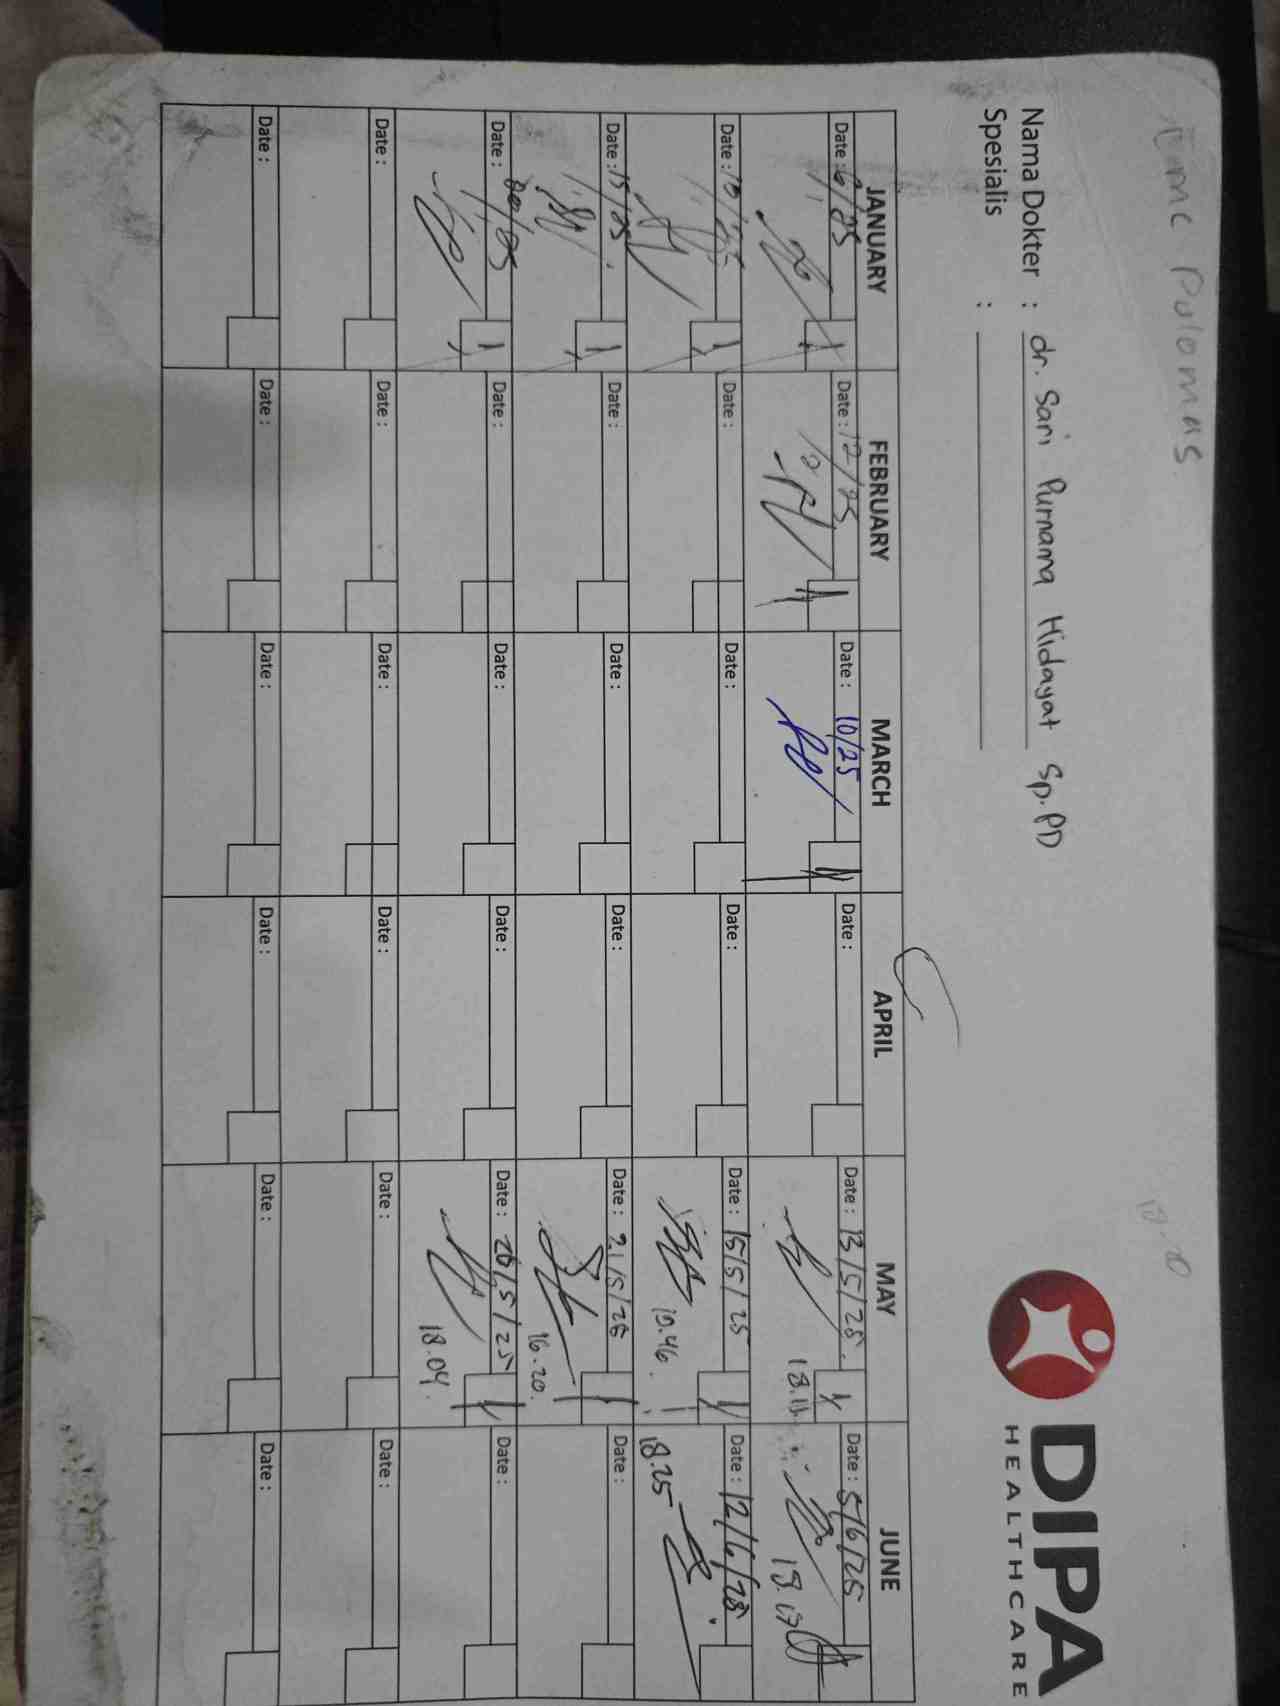 RMC Pulomas
DIPA
HEALTHCARE
Nama Dokter : dr. Sari Purnama Hidayat Sp.PD
Spesialis :
JANUARY FEBRUARY MARCH APRIL MAY JUNE
Date : 6/25 Date : 12/25 Date : 10/25 Date : Date : 13/5/25. Date : 5/6/25
18.11. 18.17
Date : 10/25 Date : Date : Date : Date : 15/5/25 Date : 12/6/25
19.46. 18.25
Date : 15/25 Date : Date : Date : Date : 21/5/25 Date :
16.20.
Date : 20/25 Date : Date : Date : Date : 26/5/25 Date :
18.04.
Date : Date : Date : Date : Date : Date :
Date : Date : Date : Date : Date : Date :